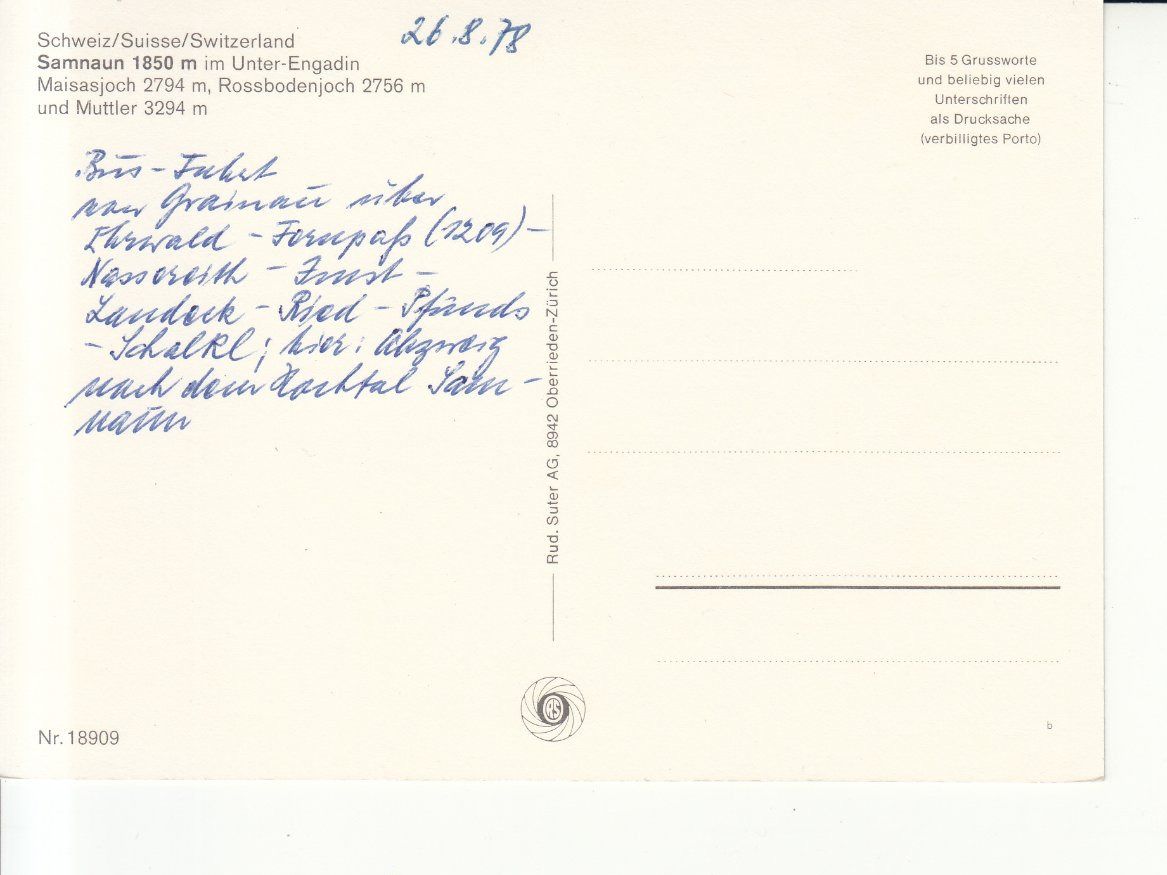 Schweiz/Suisse/Switzerland
Samnaun 1850 m im Unter-Engadin
Maisasjoch 2794 m, Rossbodenjoch 2756 m
und Muttler 3294 m
26.8.78
Bis 5 Grussworte
und beliebig vielen
Unterschriften
als Drucksache
(verbilligtes Porto)
Bus-Fahrt
von Grainau über
Ehrwald - Fernpaß (1209) -
Nassereith - Imst -
Landeck - Ried - Pfunds
- Schalkl; hier: Abzweig
nach dem Hochtal Sam-
naun
Rud. Suter AG, 8942 Oberrieden-Zürich
RS
Nr. 18909
b